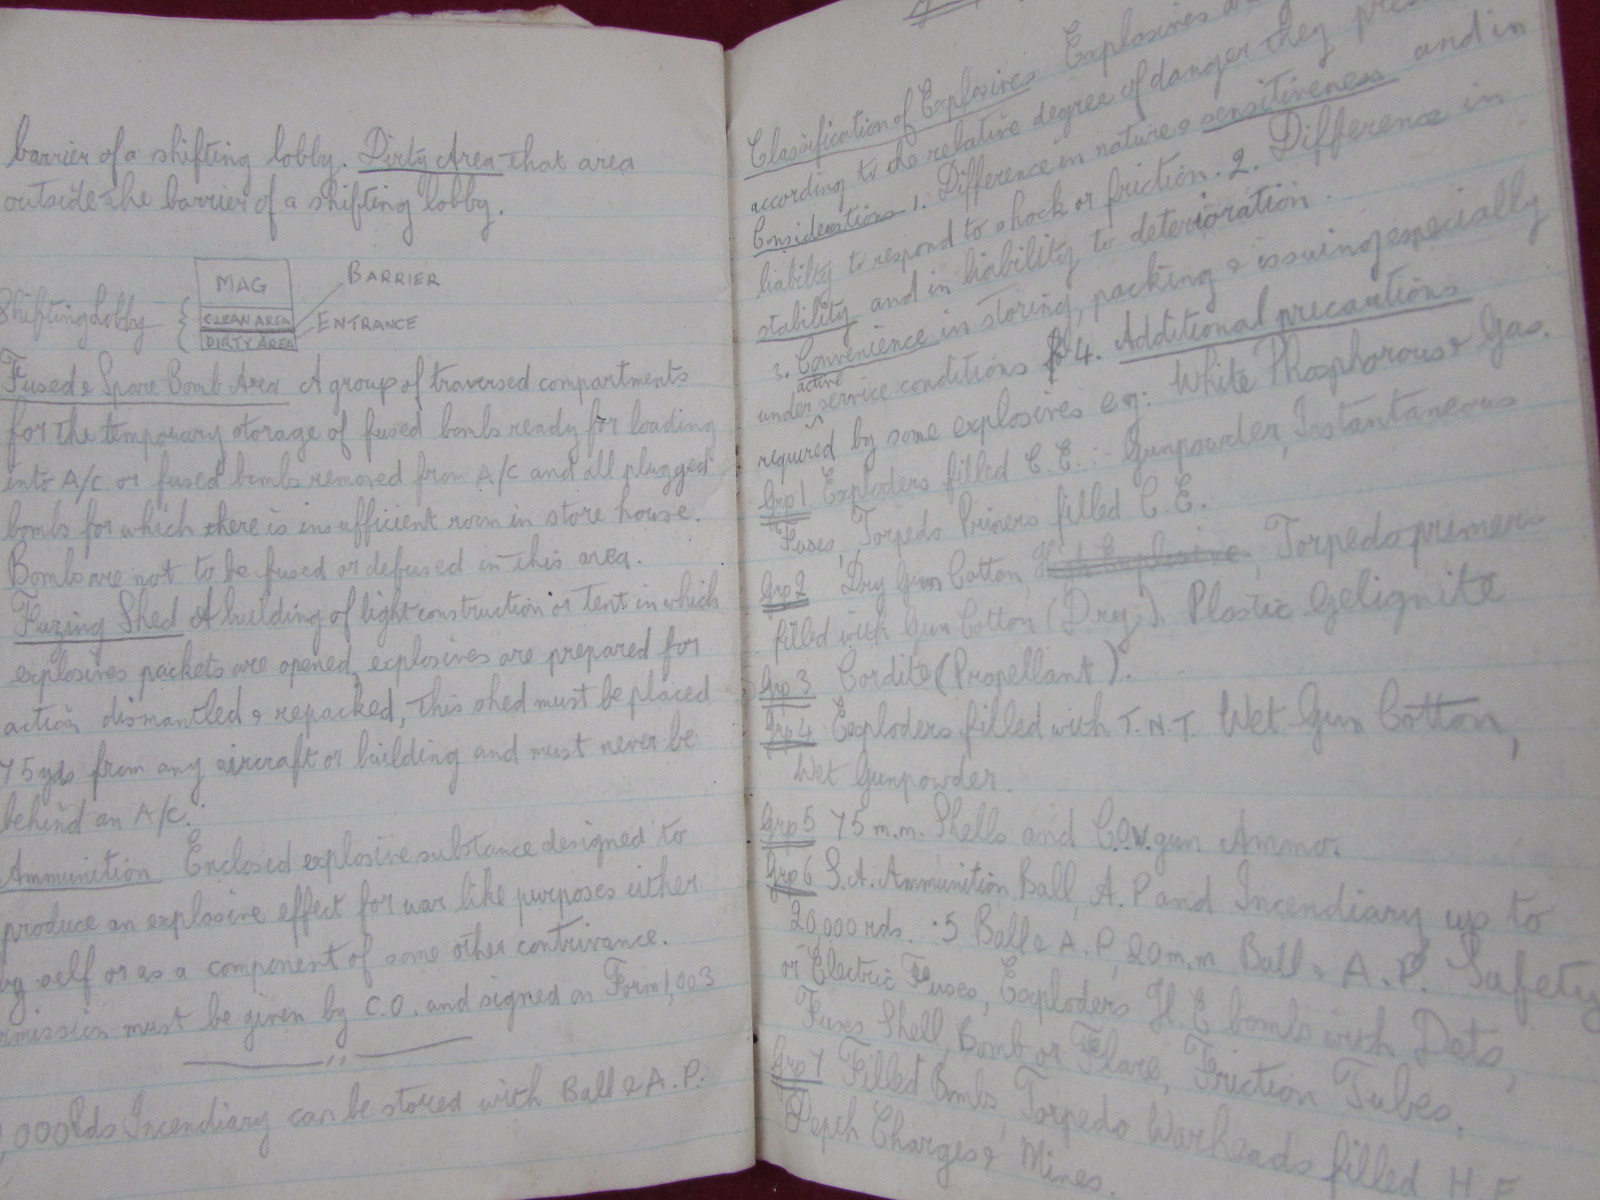 barrier of a shifting lobby. Dirty Area that area
outside the barrier of a shifting lobby.
MAG
BARRIER
Shifting Lobby
CLEAN AREA
ENTRANCE
DIRTY AREA
Fused & Spare Bomb Area A group of traversed compartments
for the temporary storage of fused bombs ready for loading
into A/C or fused bombs removed from A/C and all plugged
bombs for which there is insufficient room in store house.
Bombs are not to be fused or defused in this area.
Fuzing Shed A building of light construction or Tent in which
explosives packets are opened, explosives are prepared for
action dismantled & repacked, this shed must be placed
75 yds from any aircraft or building and must never be
behind an A/C.
Ammunition Enclosed explosive substance designed to
produce an explosive effect for war like purposes either
by self or as a component of some other contrivance.
must be given by C.O. and signed on Form 1,003
,000 Rds Incendiary can be stored with Ball & A.P.
Classification of Explosives Explosives
according to the relative degree of danger they
Considerations 1. Difference in nature & sensitiveness and in
liability to respond to shock or friction. 2. Difference in
stability and in liability to deterioration.
3. Convenience in storing, packing & issuing especially
under active service conditions 4. Additional precautions
required by some explosives eg: White Phosphorous & Gas.
Grp 1 Exploders filled C.E. :- Gunpowder, Instantaneous
Fuses, Torpedo Primers filled C.E.
Grp 2 Dry Gun Cotton, High Explosive, Torpedo primers
filled with Gun Cotton (Dry). Plastic Gelignite
Grp 3 Cordite (Propellant).
Grp 4 Exploders filled with T.N.T. Wet Gun Cotton,
Wet Gunpowder.
Grp 5 75 m.m. Shells and C.O.W. gun Ammo.
Grp 6 S.A. Ammunition Ball, A.P and Incendiary up to
20,000 rds. .5 Ball & A.P, 20 m.m Ball & A.P. Safety
or Electric Fuses, Exploders H.E bombs with Dets,
Fuses Shell, Bomb or Flare, Friction Tubes.
Grp 7 Filled Bombs, Torpedo Warheads filled H.E
Depth Charges & Mines.